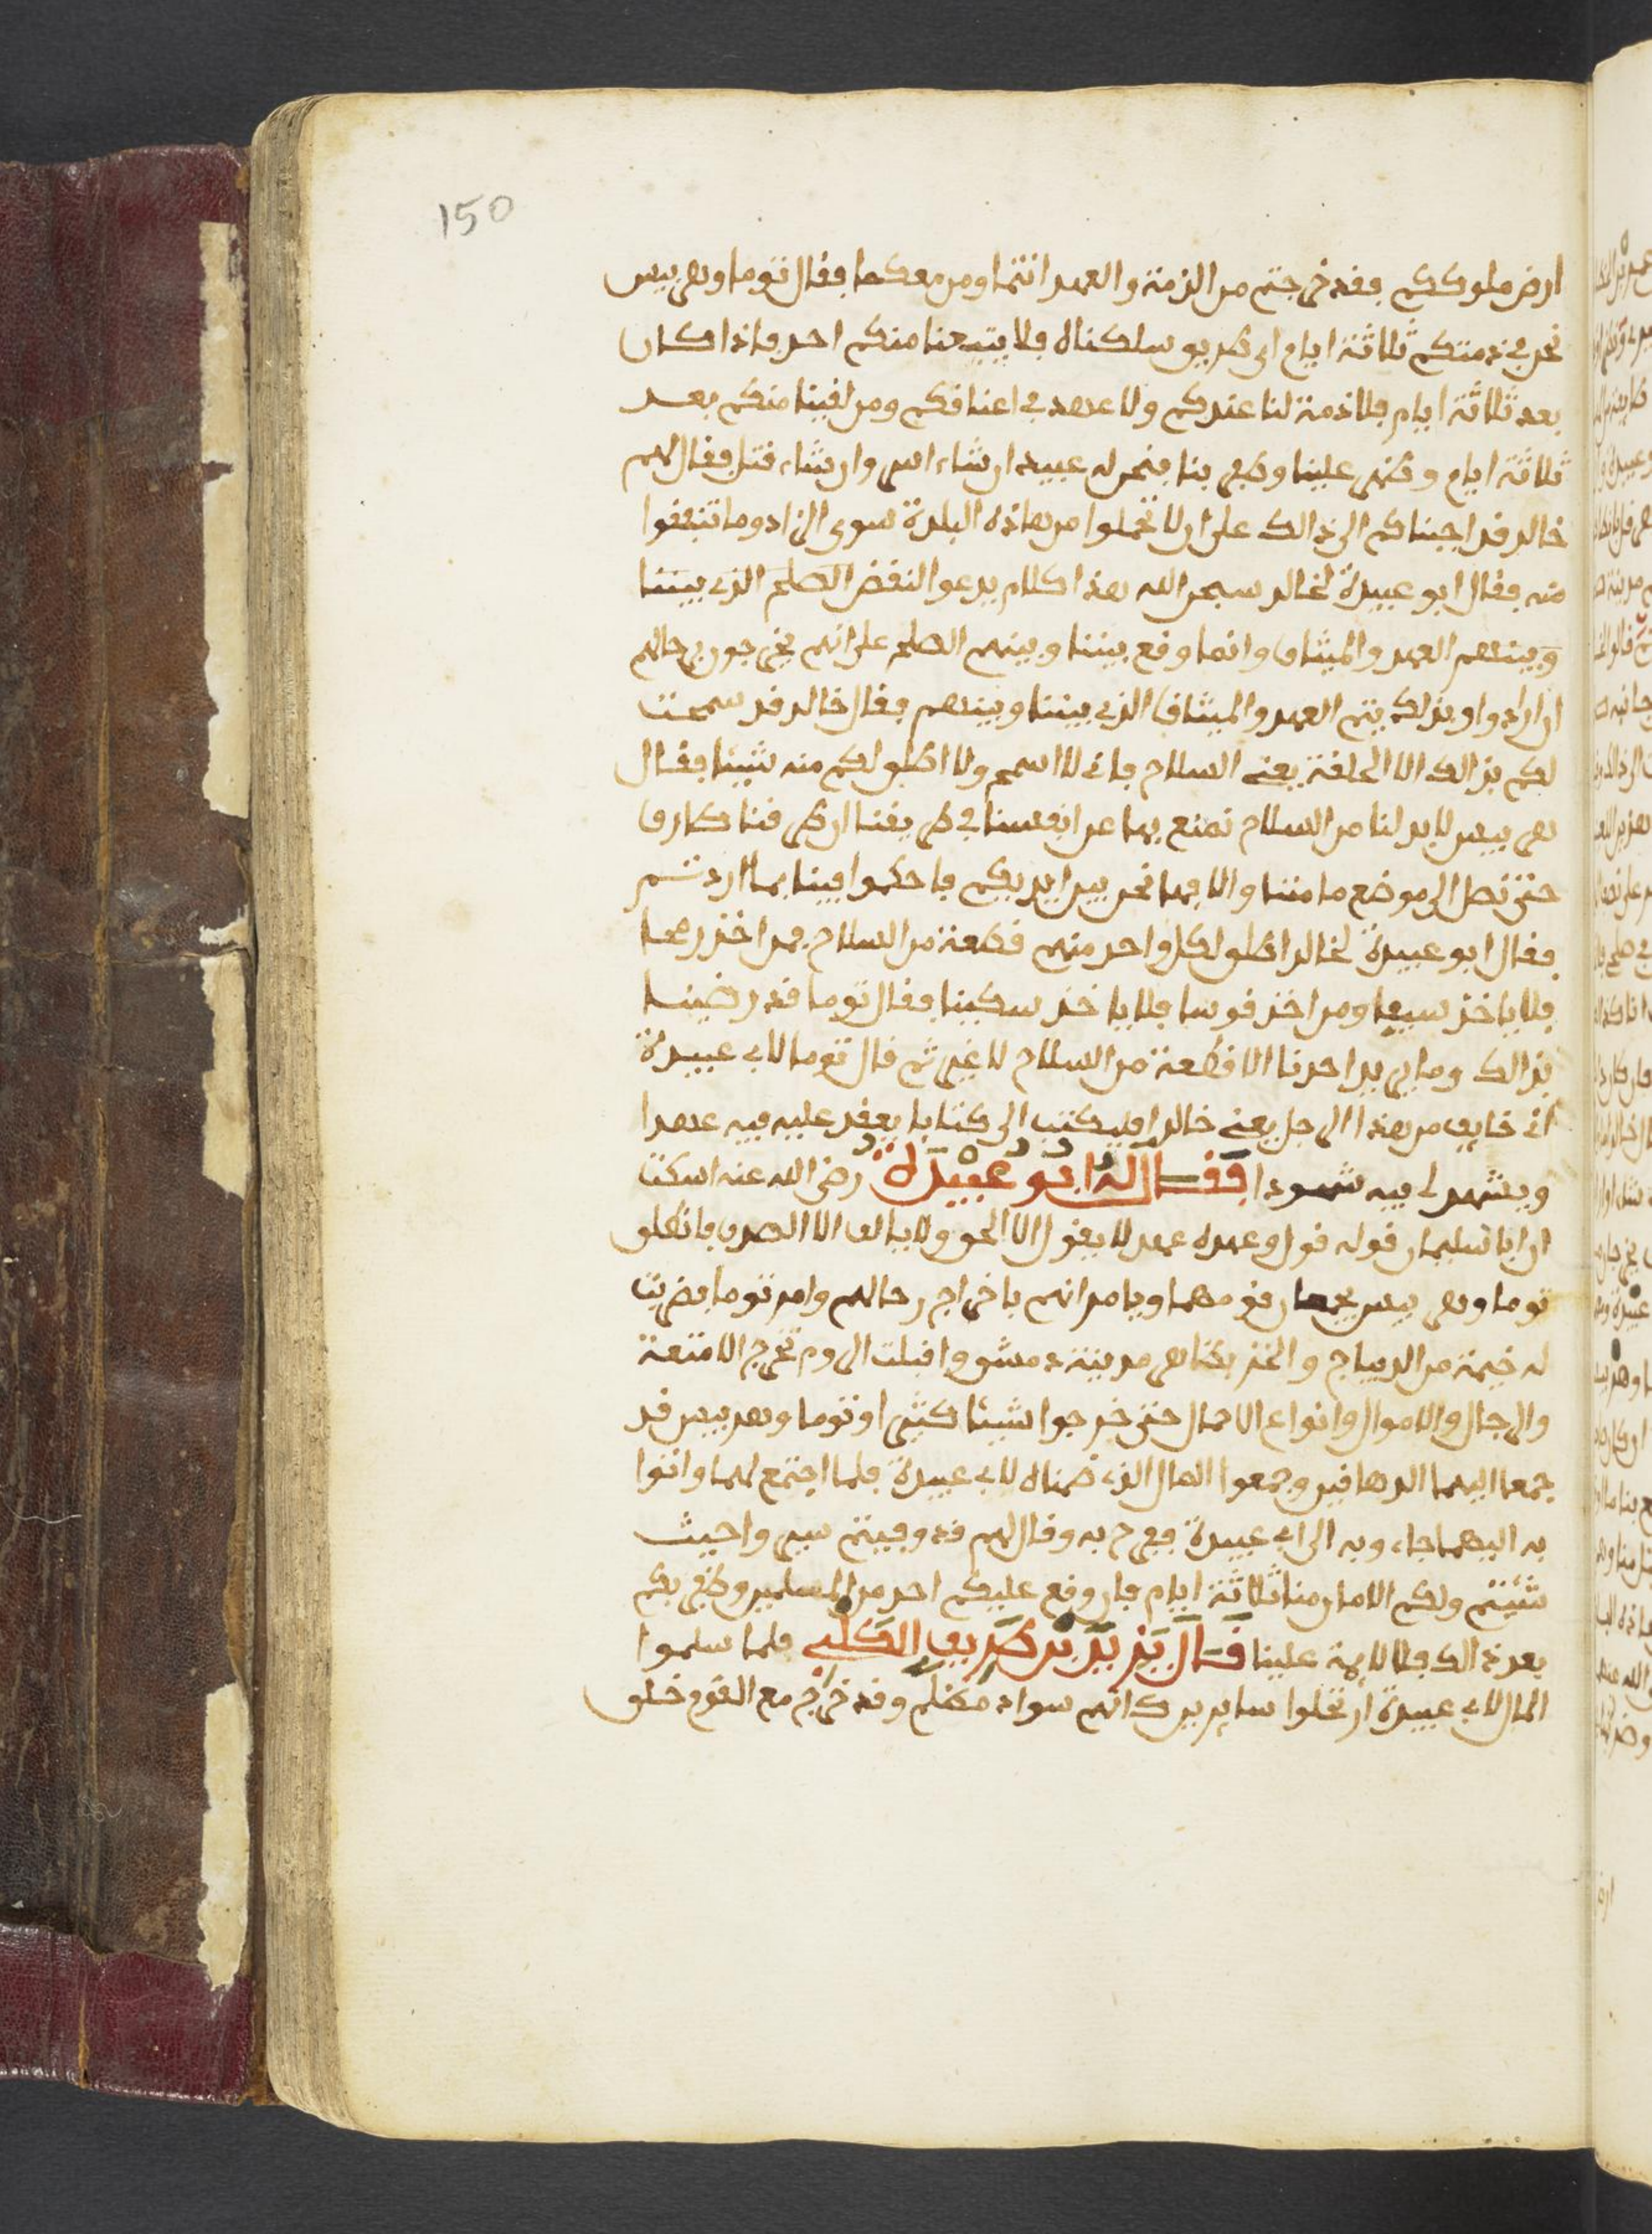 150
ارض ملوككم فقد خرجتم من الذمة والعهد انتما ومن معكما فقال توما وهربيس
نحن في ذمتكم ثلاثة ايام اي طريق سلكناه فلا يتبعنا منكم احد فاذا كان
بعد ثلاثة ايام فلا ذمة لنا عندكم ولا عهد في اعناقكم ومن لقينا منكم بعد
ثلاثة ايام وظهر علينا وظفر بنا فنحن له عبيد ان شاء اسر وان شاء قتل فقال لهم
خالد قد اجبناكم الى ذالك على ان لا تحملوا من هاذه البلدة سوى الزاد وما تنفقوا
منه فقال ابو عبيدة لخالد سبحن الله هذا كلام يدعوا لنقض الصلح الذي بيننا
وبينهم العهد والميثاق وانما وقع بيننا وبينهم الصلح على انهم يخرجون برحالهم
ان ارادوا وبذلك يتم العهد والميثاق الذي بيننا وبينهم فقال خالد قد سمحت
لكم بذالك الا الحلقة يعني السلاح فاني لا اسمح ولا اطلق لكم منه شيئا فقال
هربيس لا بد لنا من السلاح نمنع بها عن انفسنا في طريقنا ان طرقنا طارق
حتى نصل الى موضع مامننا والا فها نحن بين ايديكم فاحكموا فينا بما اردتم
فقال ابو عبيدة لخالد اطلق لكل واحد منهم قطعة من السلاح فمن اخذ رمحا
فلا ياخذ سيفا ومن اخذ قوسا فلا ياخذ سكينا فقال توما قد رضينا
بذالك وما يريد احدنا الا قطعة من السلاح لا غير ثم قال توما لابي عبيدة
اني خايف من هذا الرجل يعني خالد افليكتب الي كتابا يعقد عليه فيه عهدا
ويشهد لي فيه شهودا فقال له ابو عبيدة رضي الله عنه اسكت
ان ابا سليمان قوله قول وعهده عهد لا يقول الا الحق ولا يبالف الا الصدق فانطلق
توما وهربيس يجمعان قومهما ويامرانهم باخراج رحالهم وامر توما فضربت
له خيمة من الديباج والخز بظاهر مدينة دمشق واقبلت الروم تخرج الامتعة
والرجال والاموال وانواع الاحمال حتى خرجوا شيئا كثيرا وتوما وهربيس قد
جمعا اليهما الدهاقين وجمعوا المال الذي ضمناه لابي عبيدة فلما اجتمع لهما واتوا
به اليهما جاءوا به الى ابي عبيدة ففرح به وقال لهم قد وفيتم سيروا حيث
شئتم ولكم الامان منا ثلاثة ايام فان وقع عليكم احد من المسلمين وظفر بكم
بعد ذالك فلا لايمة علينا قال يزيد بن طريف الكلبي فلما سلموا
المال لابي عبيدة ارتحلوا سايرين كانهم سواد مظلم وقد خرج مع القوم خلق